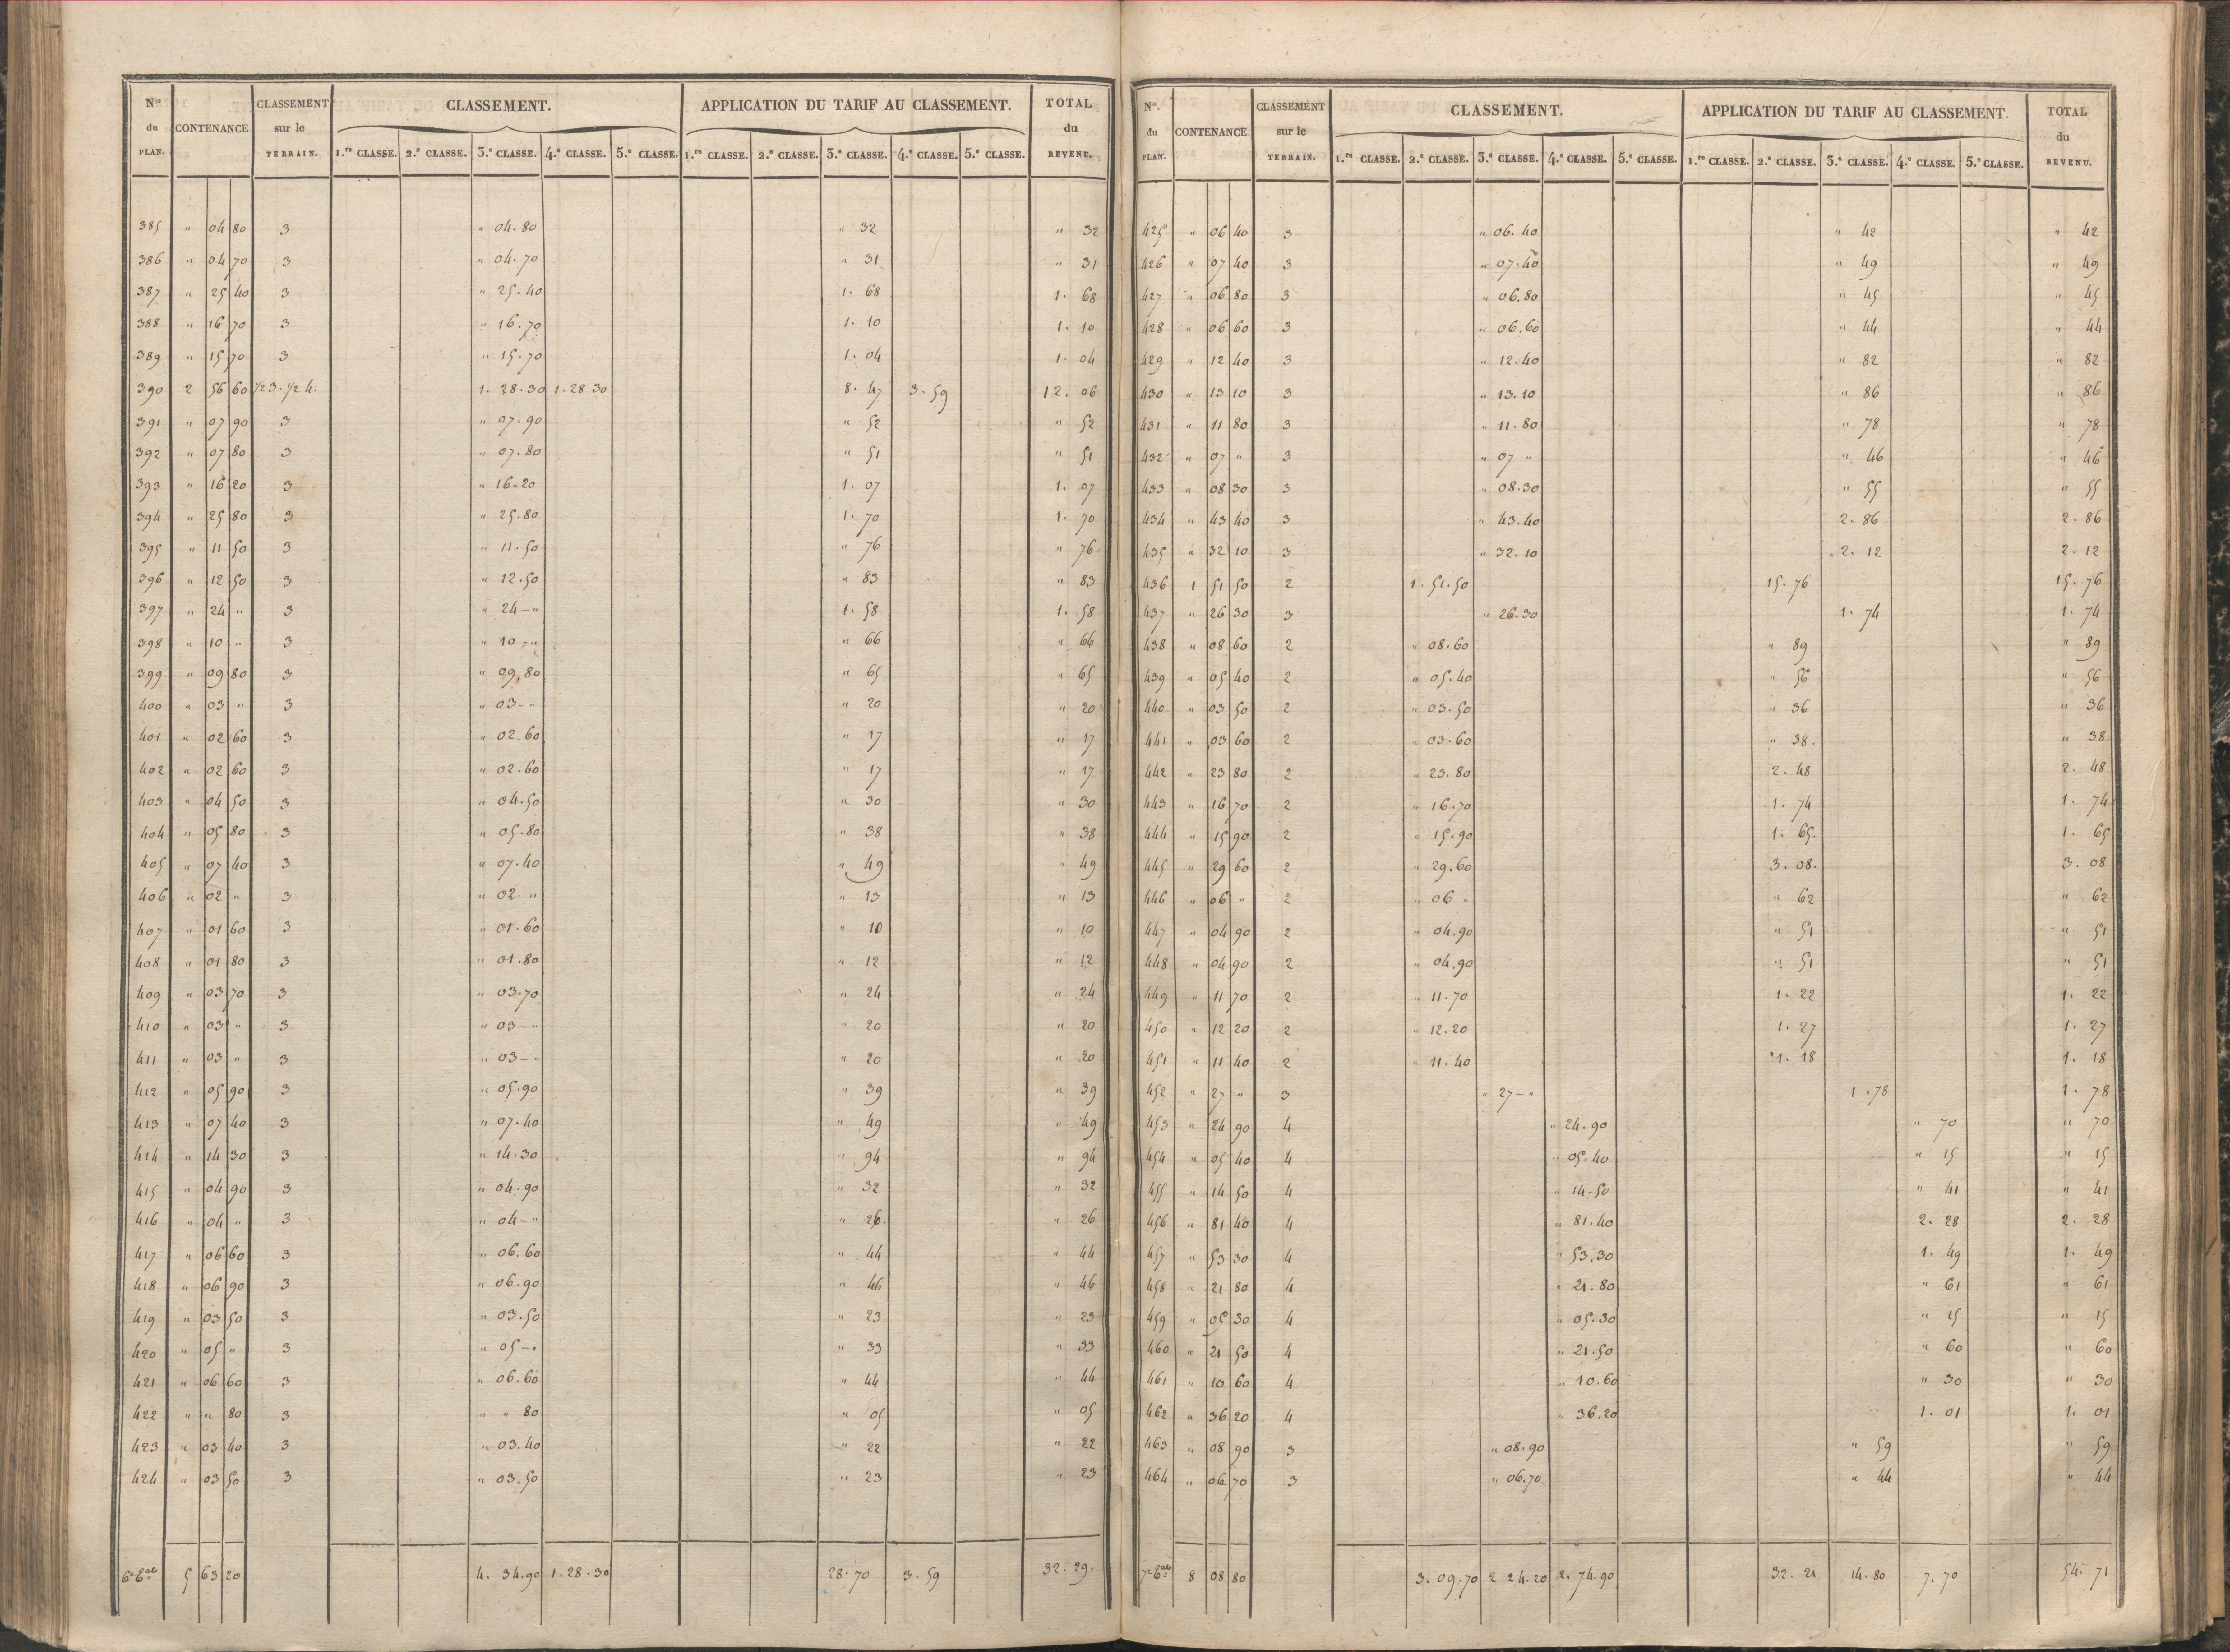 Nos du PLAN. CONTENANCE CLASSEMENT sur le TERRAIN. CLASSEMENT. APPLICATION DU TARIF AU CLASSEMENT. TOTAL du REVENU.
1.re CLASSE. 2.e CLASSE. 3.e CLASSE. 4.e CLASSE. 5.e CLASSE. 1.re CLASSE. 2.e CLASSE. 3.e CLASSE. 4.e CLASSE. 5.e CLASSE.
385 " 04 80 3 " 04.80 " 32 " 32
386 " 04 70 3 " 04.70 " 31 " 31
387 " 25 40 3 " 25.40 1. 68 1. 68
388 " 16 70 3 " 16.70 1. 10 1. 10
389 " 15 70 3 " 15.70 1. 04 1. 04
390 2 56 60 1/2 3. 1/2 4. 1. 28.30 1.28 30 8. 47 3. 59 12. 06
391 " 07 90 3 " 07.90 " 52 " 52
392 " 07 80 3 " 07.80 " 51 " 51
393 " 16 20 3 " 16.20 1. 07 1. 07
394 " 25 80 3 " 25.80 1. 70 1. 70
395 " 11 50 3 " 11.50 " 76 " 76
396 " 12 50 3 " 12.50 " 83 " 83
397 " 24 " 3 " 24-" 1. 58 1. 58
398 " 10 " 3 " 10-" " 66 " 66
399 " 09 80 3 " 09.80 " 65 " 65
400 " 03 " 3 " 03-" " 20 " 20
401 " 02 60 3 " 02.60 " 17 " 17
402 " 02 60 3 " 02.60 " 17 " 17
403 " 04 50 3 " 04.50 " 30 " 30
404 " 05 80 3 " 05.80 " 38 " 38
405 " 07 40 3 " 07.40 " 49 " 49
406 " 02 " 3 " 02-" " 13 " 13
407 " 01 60 3 " 01.60 " 10 " 10
408 " 01 80 3 " 01.80 " 12 " 12
409 " 03 70 3 " 03.70 " 24 " 24
410 " 03 " 3 " 03-" " 20 " 20
411 " 03 " 3 " 03-" " 20 " 20
412 " 05 90 3 " 05.90 " 39 " 39
413 " 07 40 3 " 07.40 " 49 " 49
414 " 14 30 3 " 14.30 " 94 " 94
415 " 04 90 3 " 04.90 " 32 " 32
416 " 04 " 3 " 04-" " 26. " 26
417 " 06 60 3 " 06.60 " 44 " 44
418 " 06 90 3 " 06.90 " 46 " 46
419 " 03 50 3 " 03.50 " 23 " 23
420 " 05 " 3 " 05-" " 33 " 33
421 " 06 60 3 " 06.60 " 44 " 44
422 " " 80 3 " " 80 " 05 " 05
423 " 03 40 3 " 03.40 " 22 " 22
424 " 03 50 3 " 03.50 " 23 " 23
5 63 20 4. 34.90 1.28.30 28.70 3. 59 32.29.
No. du PLAN. CONTENANCE CLASSEMENT sur le TERRAIN. CLASSEMENT. APPLICATION DU TARIF AU CLASSEMENT. TOTAL du REVENU.
1.re CLASSE. 2.e CLASSE. 3.e CLASSE. 4.e CLASSE. 5.e CLASSE. 1.re CLASSE. 2.e CLASSE. 3.e CLASSE. 4.e CLASSE. 5.e CLASSE.
425 " 06 40 3 " 06.40 " 42 " 42
426 " 07 40 3 " 07.40 " 49 " 49
427 " 06 80 3 " 06.80 " 45 " 45
428 " 06 60 3 " 06.60 " 44 " 44
429 " 12 40 3 " 12.40 " 82 " 82
430 " 13 10 3 " 13.10 " 86 " 86
431 " 11 80 3 " 11.80 " 78 " 78
432 " 07 " 3 " 07 " " 46 " 46
433 " 08 30 3 " 08.30 " 55 " 55
434 " 43 40 3 " 43.40 2. 86 2. 86
435 " 32 10 3 " 32.10 2. 12 2. 12
436 1 51 50 2 1. 51.50 15. 76 15. 76
437 " 26 30 3 " 26.30 1. 74 1. 74
438 " 08 60 2 " 08.60 " 89 " 89
439 " 05 40 2 " 05.40 " 56 " 56
440 " 03 50 2 " 03.50 " 36 " 36
441 " 03 60 2 " 03.60 " 38. " 38
442 " 23 80 2 " 23.80 2. 48 2. 48
443 " 16 70 2 " 16.70 1. 74 1. 74
444 " 15 90 2 " 15.90 1. 65. 1. 65
445 " 29 60 2 " 29.60 3. 08. 3. 08
446 " 06 " 2 " 06 " " 62 " 62
447 " 04 90 2 " 04.90 " 51 " 51
448 " 04 90 2 " 04.90 " 51 " 51
449 " 11 70 2 " 11.70 1. 22 1. 22
450 " 12 20 2 " 12.20 1. 27 1. 27
451 " 11 40 2 " 11.40 1. 18 1. 18
452 " 27 " 3 " 27-" 1. 78 1. 78
453 " 24 90 4 " 24.90 " 70 " 70
454 " 05 40 4 " 05.40 " 15 " 15
455 " 14 50 4 " 14.50 " 41 " 41
456 " 81 40 4 " 81.40 2. 28 2. 28
457 " 53 30 4 " 53.30 1. 49 1. 49
458 " 21 80 4 " 21.80 " 61 " 61
459 " 05 30 4 " 05.30 " 15 " 15
460 " 21 50 4 " 21.50 " 60 " 60
461 " 10 60 4 " 10.60 " 30 " 30
462 " 36 20 4 " 36.20 1. 01 1. 01
463 " 08 90 3 " 08.90 " 59 " 59
464 " 06 70 3 " 06.70 " 44 " 44
8 08 80 3. 09.70 2 24.20 2. 74.90 32. 21 14.80 7. 70 54. 71